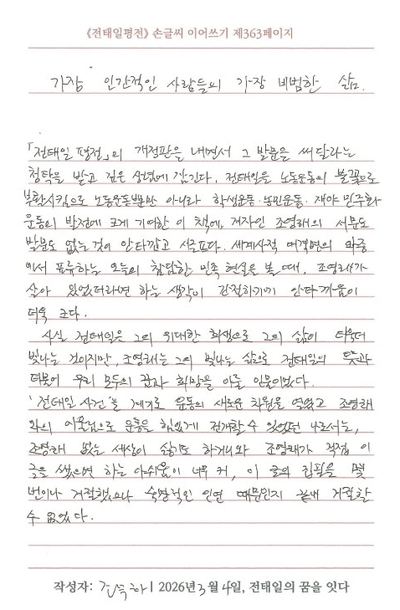 《전태일평전》 손글씨 이어쓰기 제363페이지
가장 인간적인 사람들의 가장 비범한 삶.
「전태일 평전」의 개정판을 내면서 그 발문을 써 달라는
청탁을 받고 깊은 상념에 잠긴다. 전태일을 노동운동의 불꽃으로
부활시킴으로 노동운동뿐만 아니라 학생운동·빈민운동·재야 민주화
운동의 발전에 크게 기여한 이 책에, 저자인 조영래의 서문도
발문도 없는 것이 안타깝고 서글프다. 세계사적 대격변의 와중
에서 표류하는 오늘의 참담한 민족 현실을 볼 때, 조영래가
살아 있었더라면 하는 생각이 간절하기에 안타까움이
더욱 크다.
사실 전태일은 그의 위대한 희생으로 그의 삶이 더욱더
빛나는 것이지만, 조영래는 그의 빛나는 삶으로 전태일의 뜻과
더불어 우리 모두의 꿈과 희망을 이룰 인물이었다.
'전태일 사건'을 계기로 운동의 새로운 차원을 열었고 조영래
와의 만남으로 운동을 힘있게 전개할 수 있었던 나로서는,
조영래 없는 세상이 싫기도 하거니와 조영래가 직접 이
글을 썼으면 하는 아쉬움이 너무 커, 이 글의 집필을 몇
번이나 거절했으나 숙명적인 인연 때문인지 끝내 거절할
수 없었다.
작성자: | 2026년 3월 4일, 전태일의 꿈을 잇다